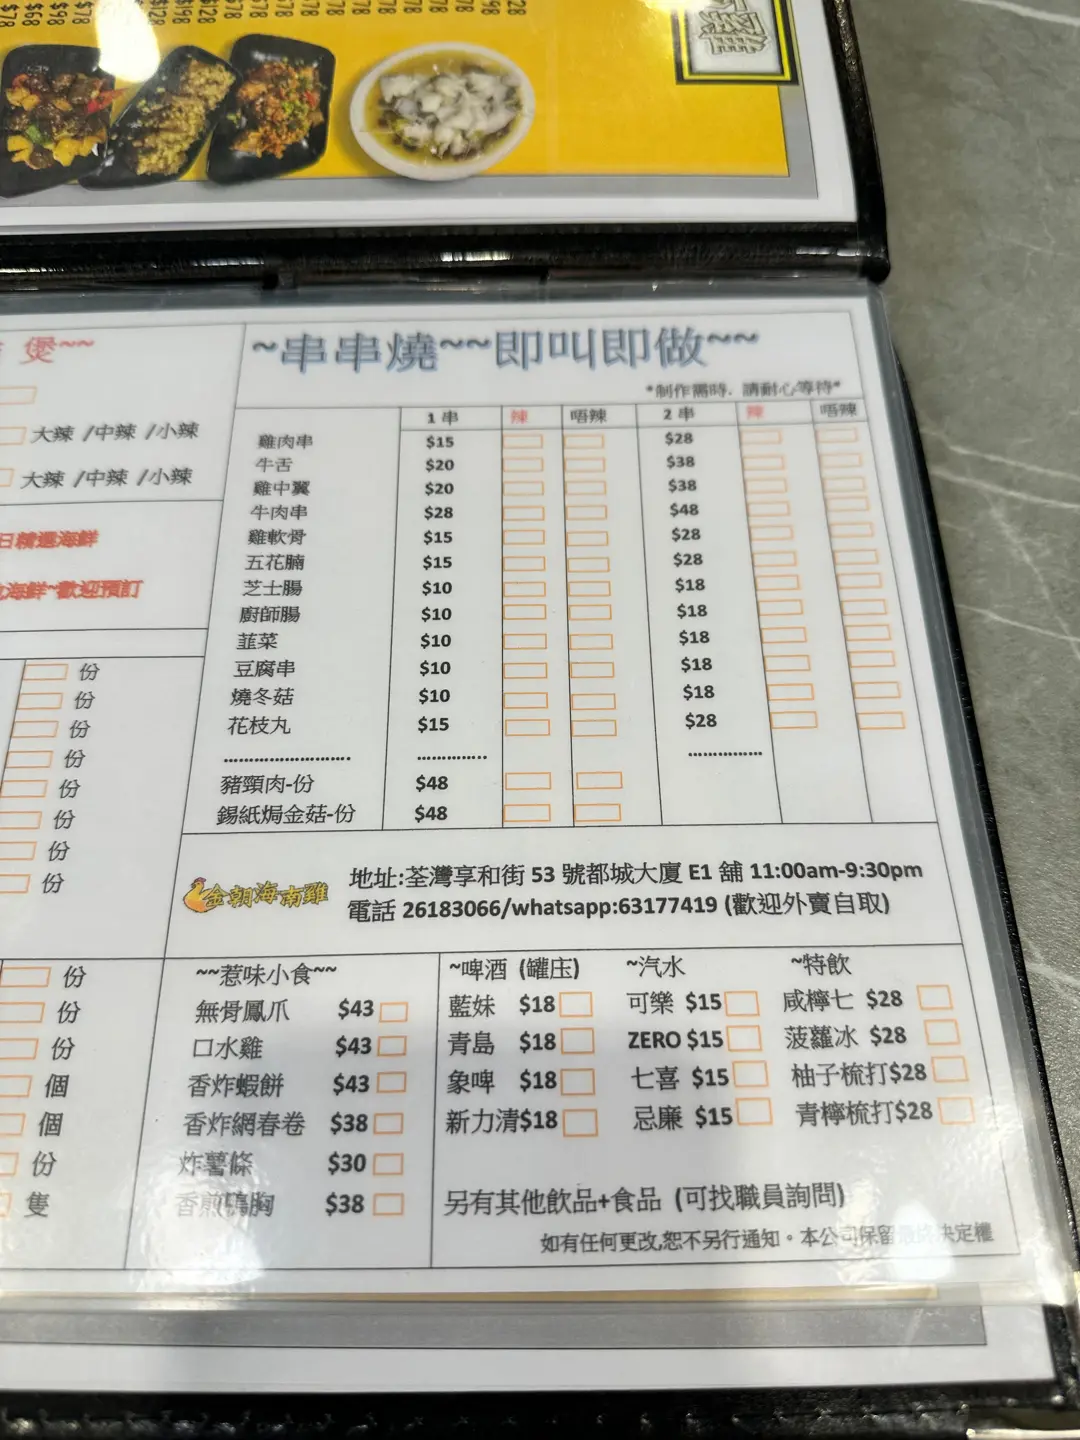 雞
煲~~
大辣 /中辣 /小辣
大辣 /中辣 /小辣
日精選海鮮
海鮮~歡迎預訂
份
份
份
份
份
份
份
份
份
份
份
個
個
份
隻
~串串燒~~即叫即做~~
*制作需時，請耐心等待*
1 串 辣 唔辣 2 串 辣 唔辣
雞肉串 $15 $28
牛舌 $20 $38
雞中翼 $20 $38
牛肉串 $28 $48
雞軟骨 $15 $28
五花腩 $15 $28
芝士腸 $10 $18
廚師腸 $10 $18
韮菜 $10 $18
豆腐串 $10 $18
燒冬菇 $10 $18
花枝丸 $15 $28
豬頸肉-份 $48
錫紙焗金菇-份 $48
金朝海南雞
地址:荃灣享和街 53 號都城大廈 E1 舖 11:00am-9:30pm
電話 26183066/whatsapp:63177419 (歡迎外賣自取)
~~惹味小食~~
無骨鳳爪 $43
口水雞 $43
香炸蝦餅 $43
香炸網春卷 $38
炸薯條 $30
香煎鴨胸 $38
~啤酒 (罐庄) ~汽水 ~特飲
藍妹 $18 可樂 $15 咸檸七 $28
青島 $18 ZERO $15 菠蘿冰 $28
象啤 $18 七喜 $15 柚子梳打$28
新力清$18 忌廉 $15 青檸梳打$28
另有其他飲品+食品 (可找職員詢問)
如有任何更改,恕不另行通知。本公司保留最終決定權